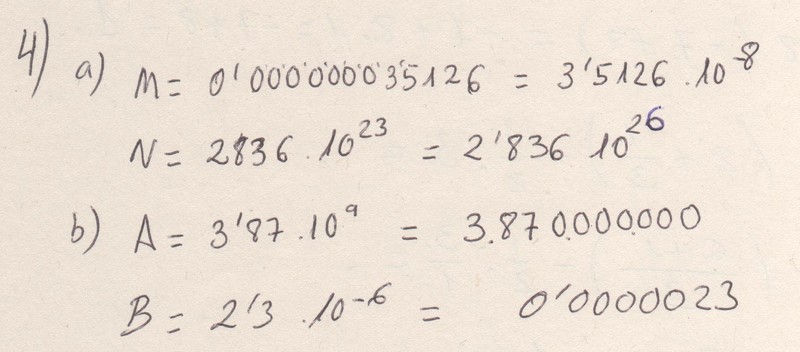 4) a) M = 0'000000035126 = 3'5126 . 10⁻⁸
N = 2836 . 10²³ = 2'836 10²⁶
b) A = 3'87 . 10⁹ = 3.870.000.000
B = 2'3 . 10⁻⁶ = 0'0000023